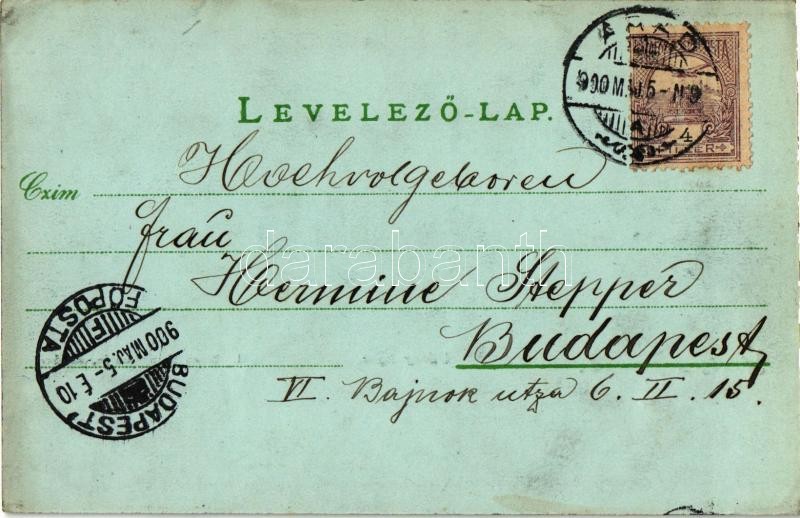 LEVELEZŐ-LAP.
Czim
Hochvolgeboren
Frau
Hermine Stepper
Budapest
VI. Bajnok utza 6. II. 15.
900 MÁJ. 5
4
BUDAPEST
900 MÁJ. 5 - É 10
FŐPOSTA
darabanth